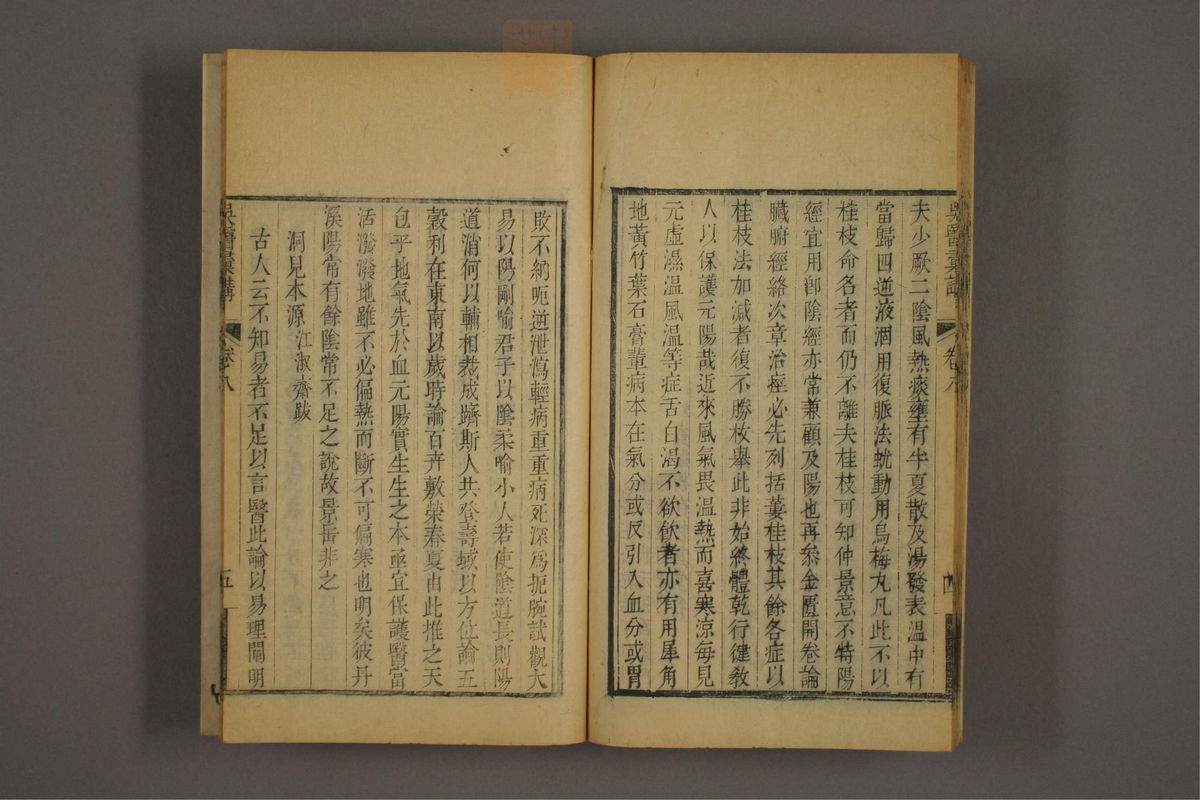 夫少厥二陰風熱痰壅有半夏散及湯發表溫中有
當歸四逆液涸用復脈法蚘動用烏梅丸凡此不以
桂枝命名者而仍不離夫桂枝可知仲景意不特陽
經宜用卽陰經亦常兼顧及陽也再叅金匱開卷論
臟腑經絡次章治痙必先列括蔞桂枝其餘各症以
桂枝法加減者復不勝枚舉此非始終體乾行健敎
人以保護元陽哉近來風氣畏溫熱而喜寒涼每見
元虛濕溫風溫等症舌白渴不欲飮者亦有用犀角
地黃竹葉石膏輩病本在氣分或反引入血分或胃
吳醫彚講 卷八 四
敗不納呃逆泄瀉輕病重重病死深爲扼腕試觀大
易以陽剛喻君子以陰柔喻小人若使陰道長則陽
道消何以輔相裁成躋斯人共登壽域以方位論五
穀利在東南以歲時論百卉敷榮春夏由此推之天
包乎地氣先於血元陽實生生之本亟宜保護醫當
活潑潑地雖不必偏熱而斷不可偏寒也明矣彼丹
溪陽常有餘陰常不足之說故景岳非之
洞見本源江淑齋跋
古人云不知易者不足以言醫此論以易理闡明
吳醫彚講 卷八 五